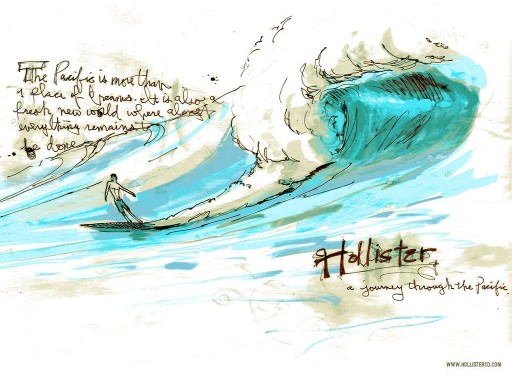 The Pacific is more than
a place of dreams. It is also a
fresh new world where almost
everything remains to
be done
Hollister,
a journey through the Pacific.
WWW.HOLLISTERCO.COM